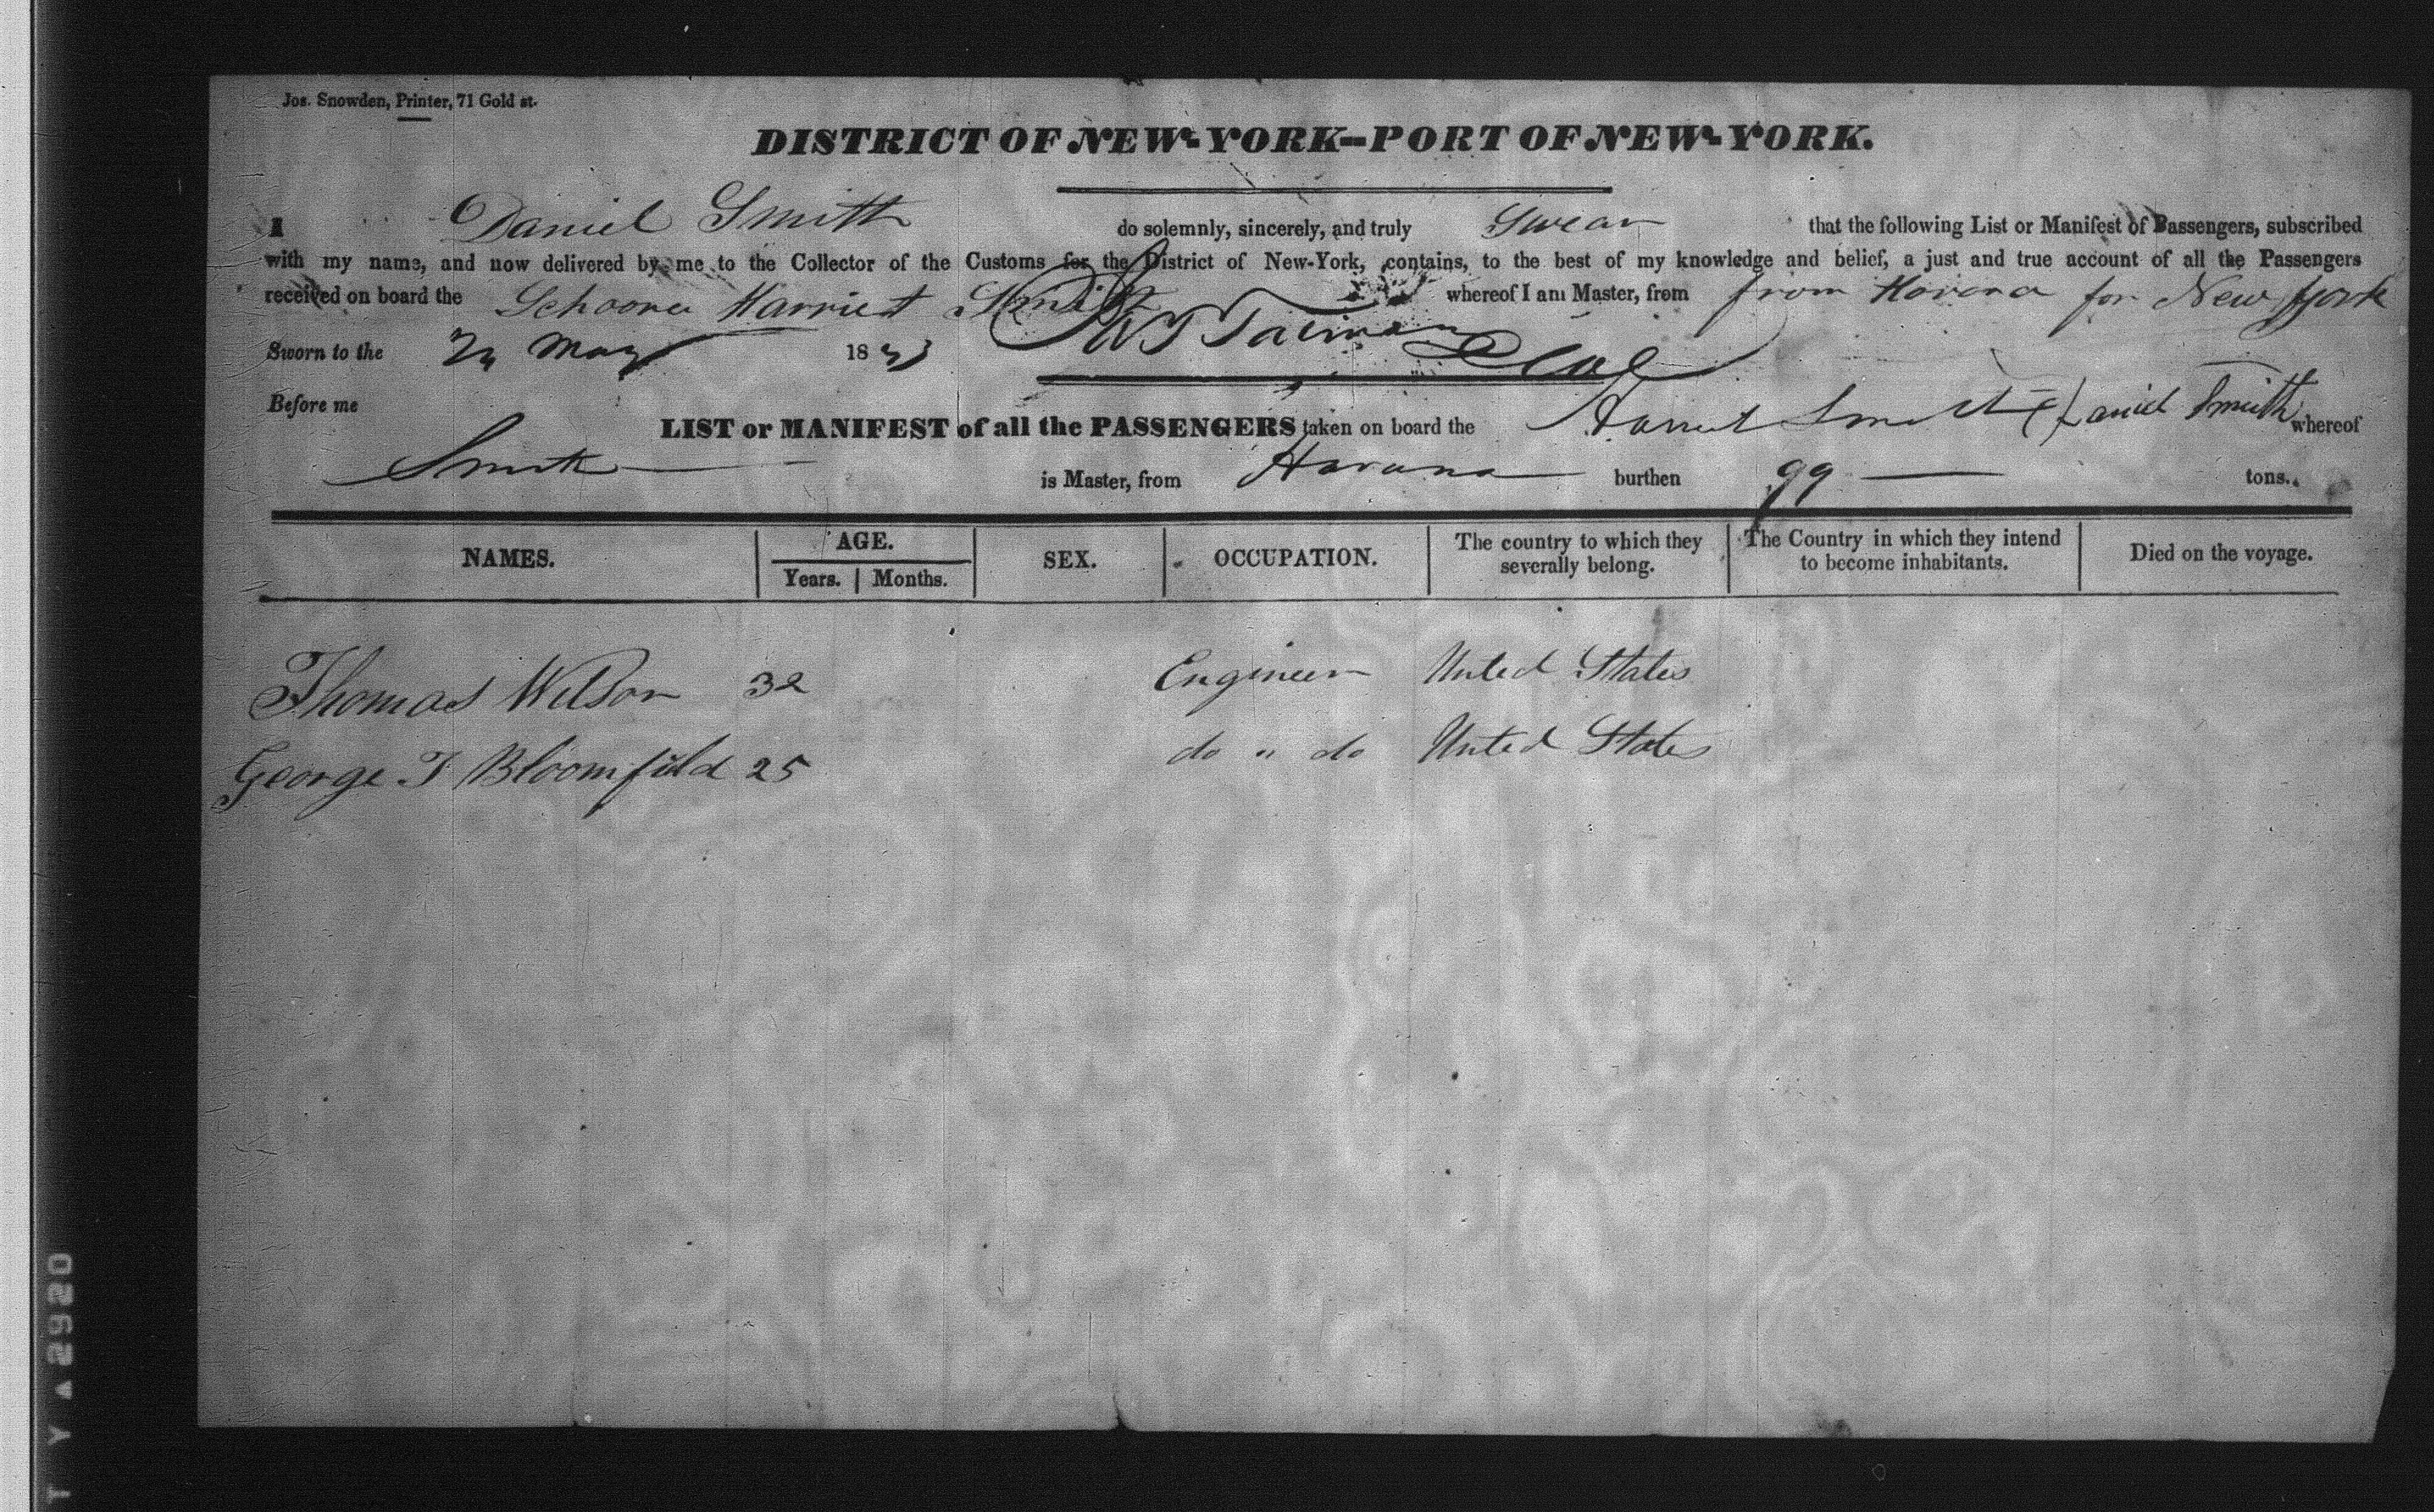 Jos. Snowden, Printer, 71 Gold st.
DISTRICT OF NEW-YORK--PORT OF NEW-YORK.
I Daniel Smith do solemnly, sincerely, and truly Swear that the following List or Manifest of Passengers, subscribed
with my name, and now delivered by me to the Collector of the Customs for the District of New-York, contains, to the best of my knowledge and belief, a just and true account of all the Passengers
received on board the Schooner Harriet Smith whereof I am Master, from from Havana for New York
Sworn to the May 18
Before me
LIST or MANIFEST of all the PASSENGERS taken on board the Harriet Smith Daniel Smith whereof
Smith is Master, from Havana burthen 99 tons.
NAMES. AGE. SEX. OCCUPATION. The country to which they severally belong. The Country in which they intend to become inhabitants. Died on the voyage.
Years. Months.
Thomas Wilson 32 Engineer United States
George T Bloomfield 25 do " do United States
T Y ▲ 2920